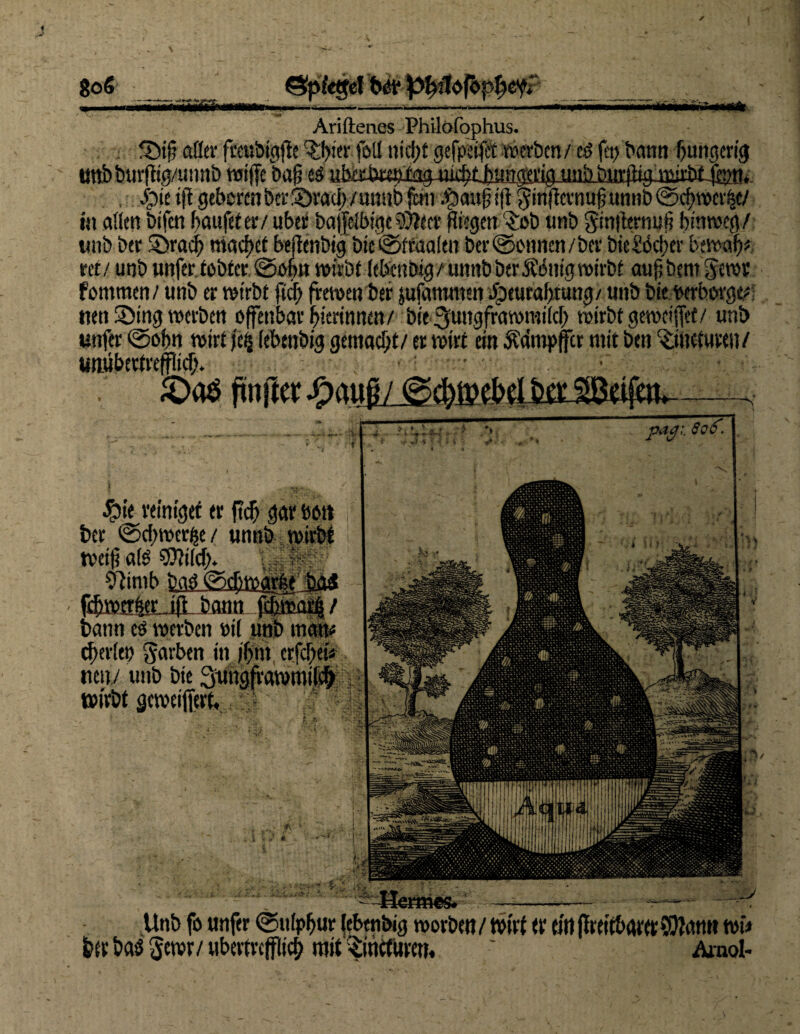 806 Spiegel der Philosophey.
Aristenes Philosophus.
Diß aller freudigste Thier soll nicht gespeiset werden/ es sey dann hungerig
und durstig/unnd wisse daß es uber drey tag nicht hungerig und durstig wirdt seyn.
Hie ist geboren der Drach/unnd sein Hauß ist Finsternuß unnd Schwertze/
in allen disen hauset er/ uber dasselbige Meer fliegen Tod und Finsternuß hinweg/
und der Drach machet bestendig die Straalen der Sonnen/der die Löcher bewah-
ret/ und unser todter Sohn wirdt lebendig/ unnd der König wirdt auß dem Fewr
kommen/ und er wirdt sich frewen der zusammen Heurahtung/ und die verborge-
nen Ding werden offenbar hierinnen/ die Jungfrawmilch wirdt geweisset/ und
unser Sohn wirt jetz lebendig gemacht/ er wirt ein Kämpffer mit den Tincturen/
unübertrefflich.
Das finster Hauß/ Schwebel der Weisen.
pag: 806.
Hie reiniget er sich gar von
der Schwertze/ unnd wirdt
weiß als Milch.
Nimb das Schwartze das
schwertzer ist dann schwartz/
dann es werden vil und man-
cherley Farben in jhm erschei-
nen/ und die Jungfrawmilch
wirdt geweissert.
Aqua
Hermes.
Und so unser Sulphur lebendig worden/ wirt er ein streitbarer Mann wi-
der das Fewr/ ubertrefflich mit Tincturen.
Arnol-